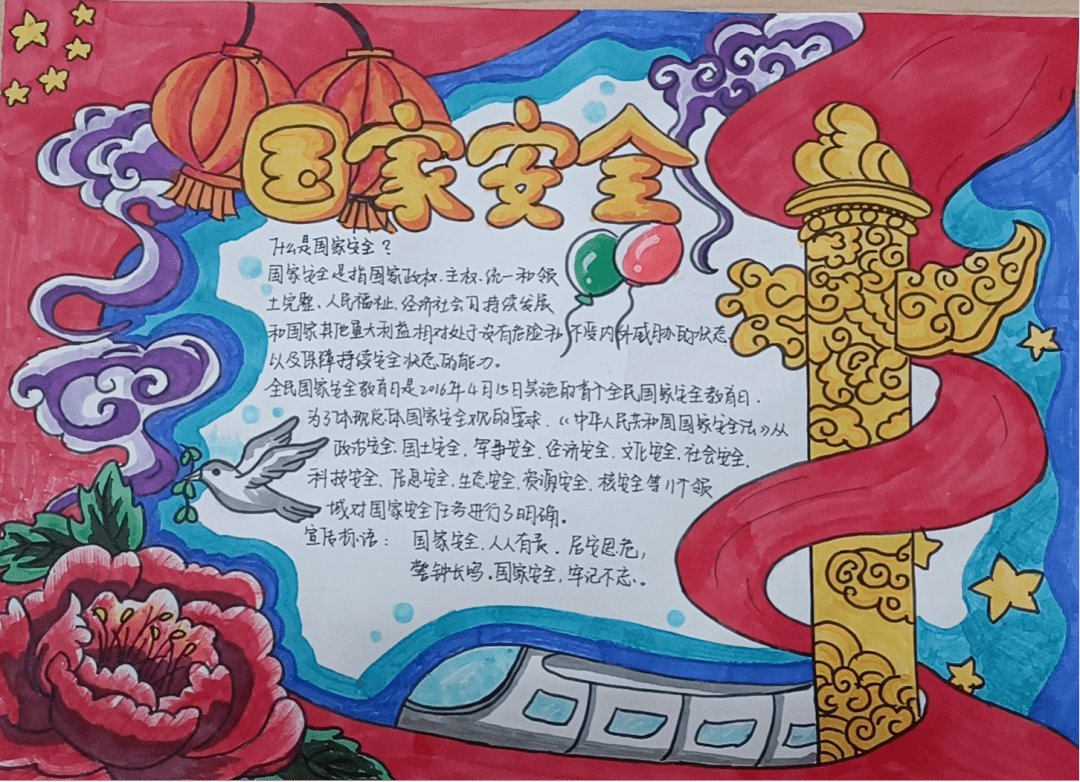 国家安全
什么是国家安全？
国家安全是指国家政权、主权、统一和领
土完整、人民福祉、经济社会可持续发展
和国家其他重大利益相对处于没有危险和不受内外威胁的状态，
以及保障持续安全状态的能力。
全民国家安全教育日是2016年4月15日实施的首个全民国家安全教育日，
为了体现总体国家安全观的要求，《中华人民共和国国家安全法》从
政治安全、国土安全、军事安全、经济安全、文化安全、社会安全、
科技安全、信息安全、生态安全、资源安全、核安全等11个领
域对国家安全任务进行了明确。
宣传标语： 国家安全，人人有责。居安思危，
警钟长鸣。国家安全，牢记不忘。